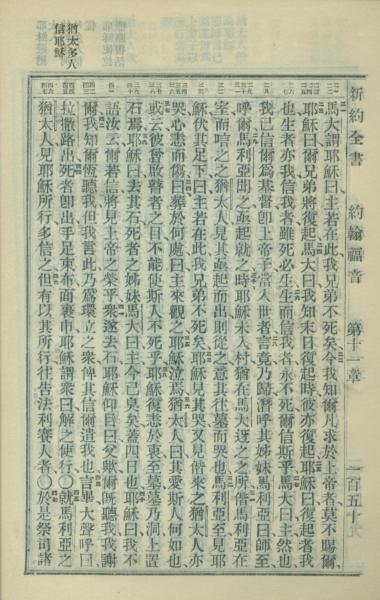 新約全書 約翰福音 第十一章 一百五十
馬大謂耶穌曰主若在此我兄弟不死矣今我知爾凡求於上帝者莫不賜爾
耶穌曰爾兄弟將復起馬大曰我知末日復起時彼亦復起耶穌曰復起者我
也生者亦我信我者雖死必生生而信我者永不死爾信斯乎馬大曰主然也
我已信爾爲基督卽上帝子當入世者言竟乃歸潛呼其姊妹馬利亞曰師至
呼爾馬利亞聞之亟起就之時耶穌未入村猶在馬大迓之之所偕馬利亞在
室而唁之之猶太人見其亟起而出則從之意其往墓而哭也馬利亞至見耶
穌伏其足下曰主若在此我兄弟不死矣耶穌見其哭又見偕來之猶太人亦
哭心悲而傷曰葬於何處曰主來觀之耶穌泣焉猶太人曰其愛斯人何如也
或云彼啟瞽者之目不能使斯人不死乎耶穌復悲於衷至墓墓乃洞上置
石焉耶穌曰去其石死者之姊妹馬大曰主今已臭矣蓋四日也耶穌曰我不
語汝云爾若信將見上帝之榮乎衆遂去石耶穌仰目曰父歟爾旣聽我我謝
爾我知爾恆聽我但我言此乃爲環立之衆俾其信爾遣我也言畢大聲呼曰
拉撒路出死者卽出手足束布面裹巾耶穌謂衆曰解之使行〇就馬利亞之
猶太人見耶穌所行多信之但有以其所行往告法利賽人者〇於是祭司諸
猶太多人
信耶穌